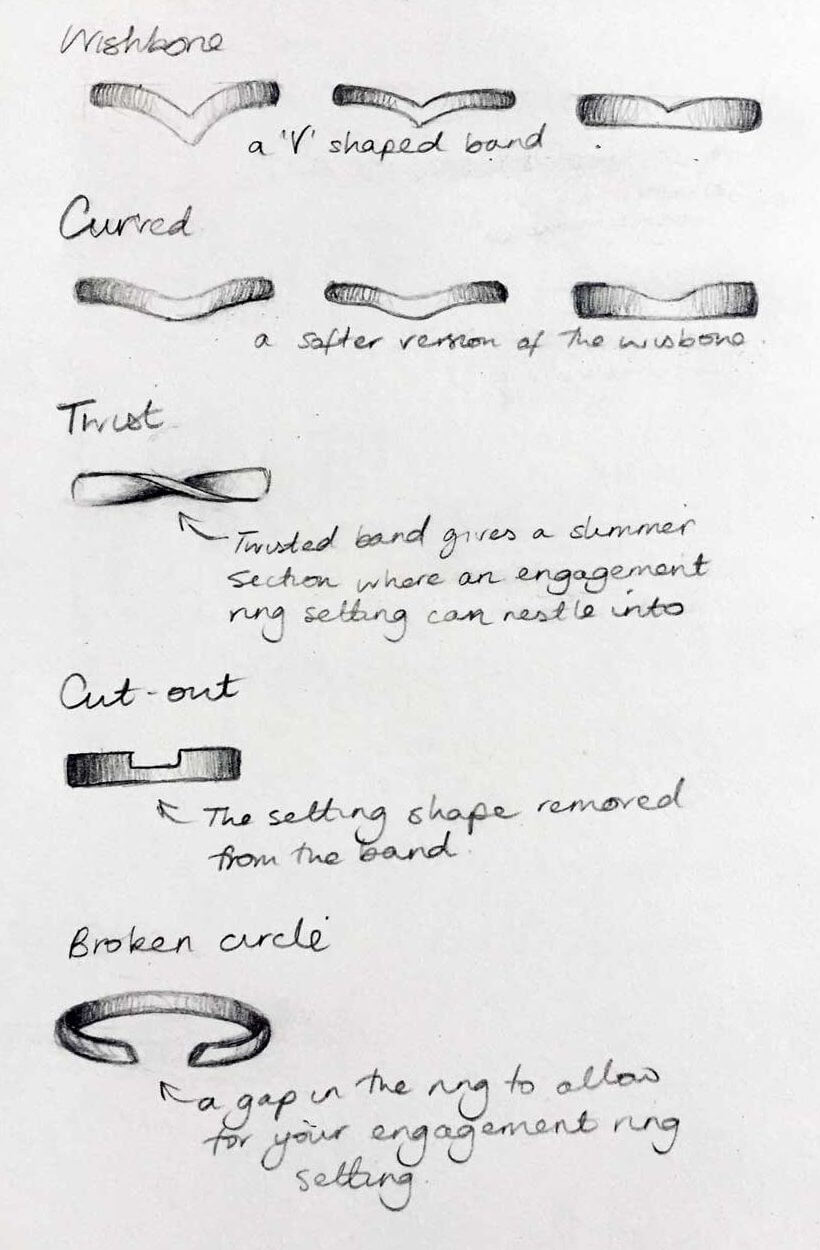 Wishbone
a 'V' shaped band
Curved
a softer version of the wisbone.
Twist
Twisted band gives a slimmer
section where an engagement
ring setting can nestle into
Cut-out
The setting shape removed
from the band.
Broken circle
a gap in the ring to allow
for your engagement ring
setting.